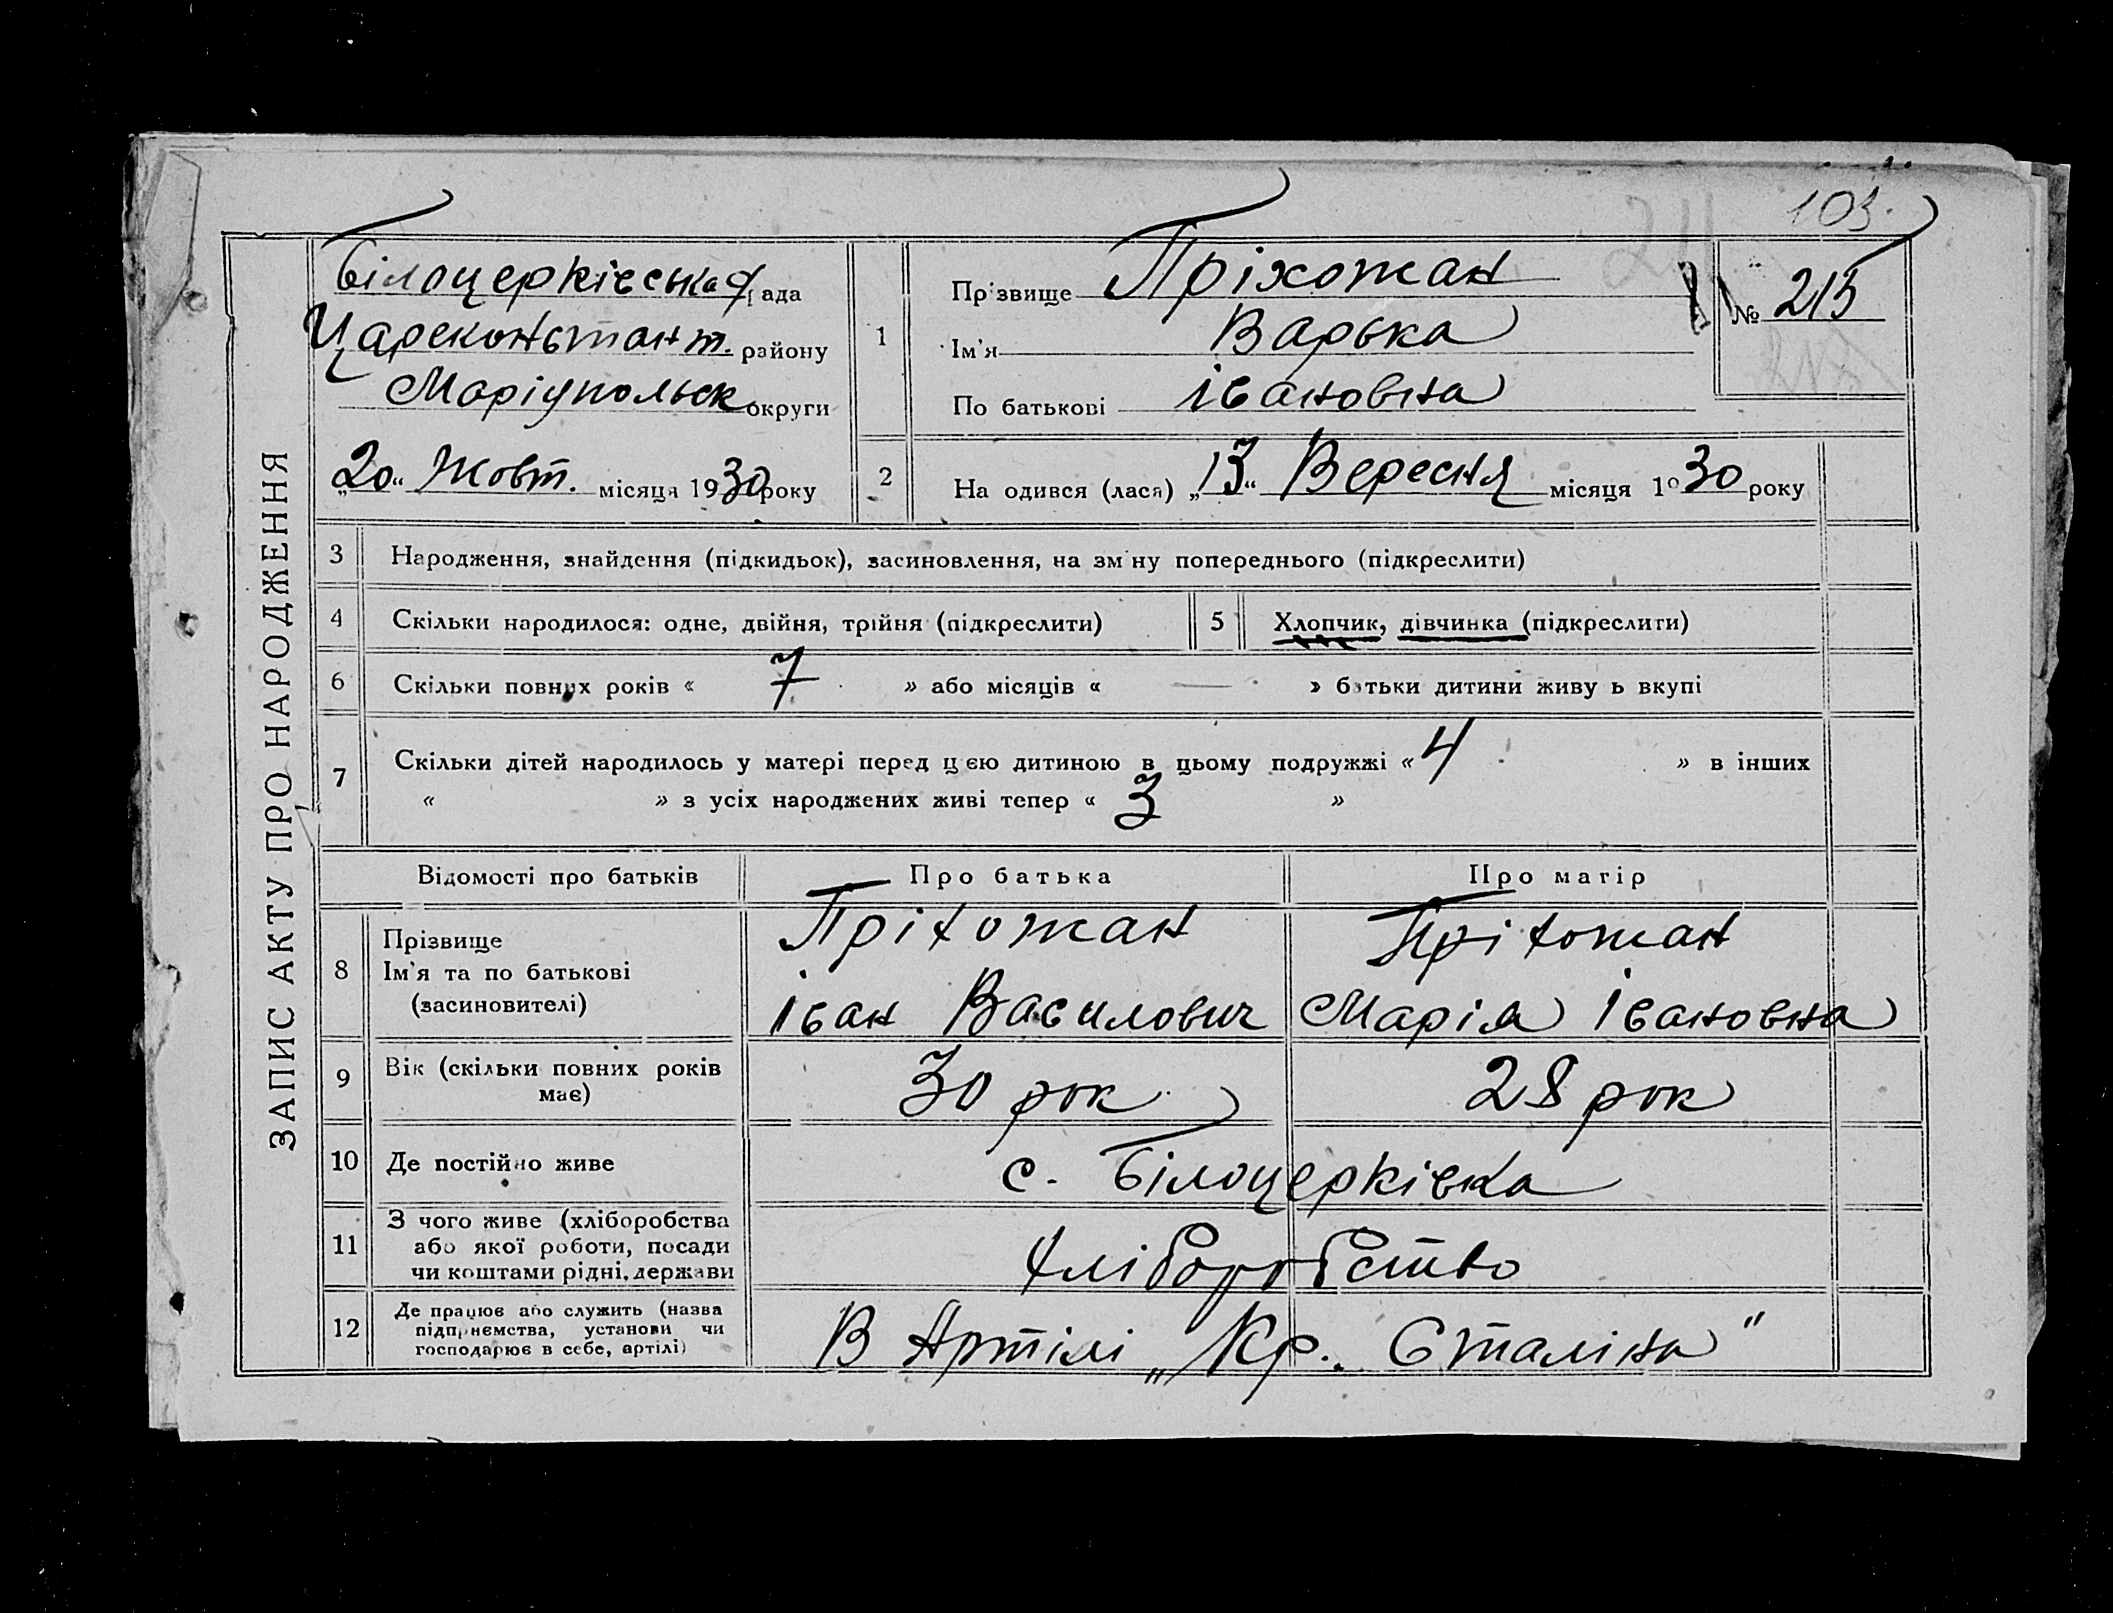 103.
ЗАПИС АКТУ ПРО НАРОДЖЕННЯ
Білоцерківська рада
Цареконстант. району
Маріупольск округи
„20“ Жовт. місяця 1930 року
1
Прізвище Пріхожан
Ім'я Варька
По батькові івановна
№ 215
2
На одився (лася) „13“ Вересня місяця 1930 року
3 Народження, знайдення (підкидьок), засиновлення, на зм ну попереднього (підкреслити)
4 Скільки народилося: одне, двійня, трійня (підкреслити)
5 Хлопчик, дівчинка (підкреслити)
6 Скільки повних років « 7 » або місяців « — » батьки дитини живу ь вкупі
7 Скільки дітей народилось у матері перед цією дитиною в цьому подружжі « 4 » в інших
« » з усіх народжених живі тепер « 3 »
Відомості про батьків Про батька Про матір
8 Прізвище
Ім'я та по батькові
(засиновителі)
Пріхожан
іван Василович
Пріхожан
Марія івановна
9 Вік (скільки повних років
має)
30 рок
28 рок
10 Де постійно живе
с. Білоцерківка
11 З чого живе (хліборобства
або якої роботи, посади
чи коштами рідні, держави
хліборобство
12 Де працює або служить (назва
підприємства, установи чи
господарює в себе, артілі)
В Артілі „Кр. Сталіна"